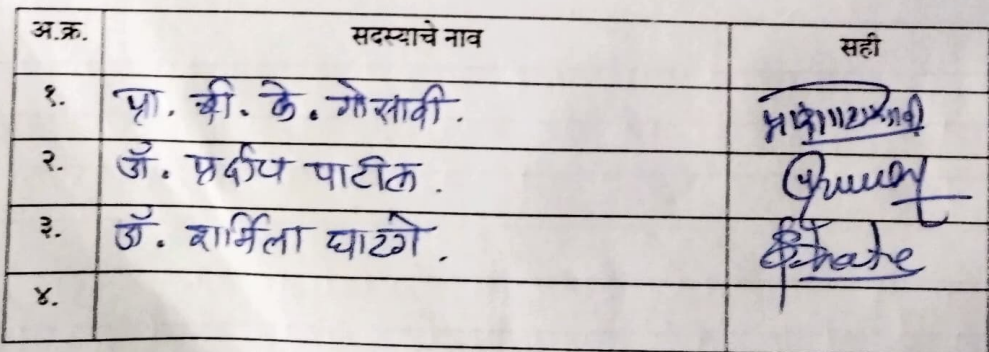 अ.क्र. सदस्याचे नाव सही
१. प्रा. बी. के. गोसावी.
२. डॉ. प्रदीप पाटील.
३. डॉ. शर्मिला घाटगे.
४.